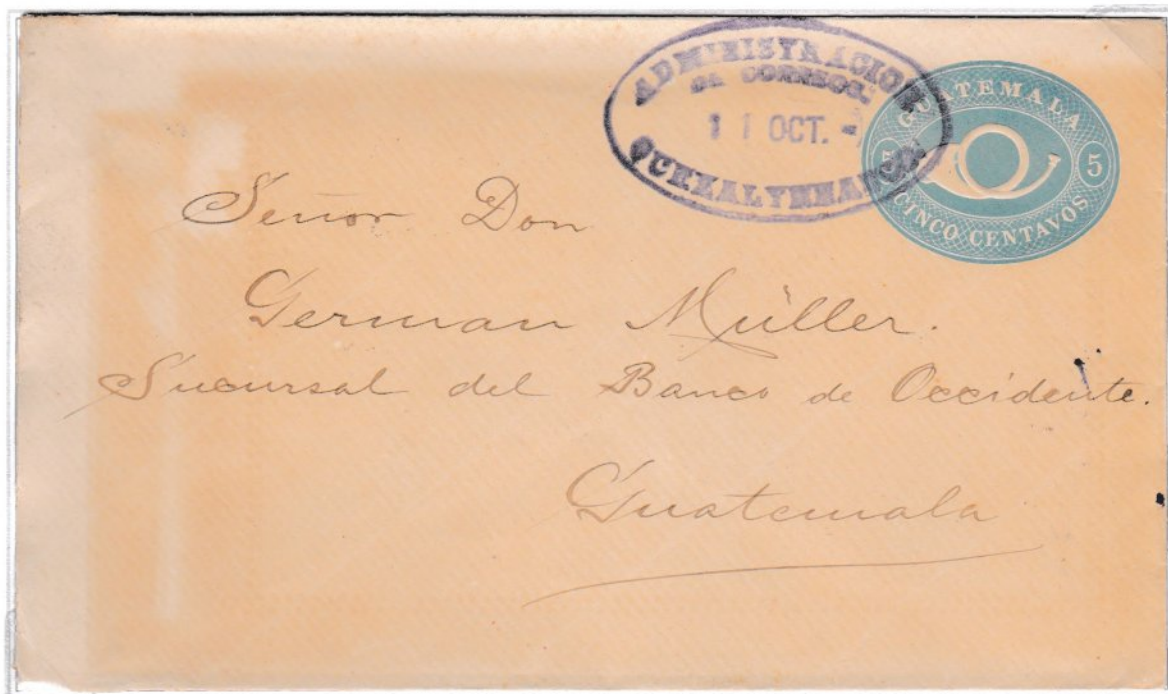 ADMINISTRACION
DE CORREOS.
11 OCT.
QUEZALTENANGO
GUATEMALA
5 5
CINCO CENTAVOS
Señor Don
German Müller.
Sucursal del Banco de Occidente.
Guatemala